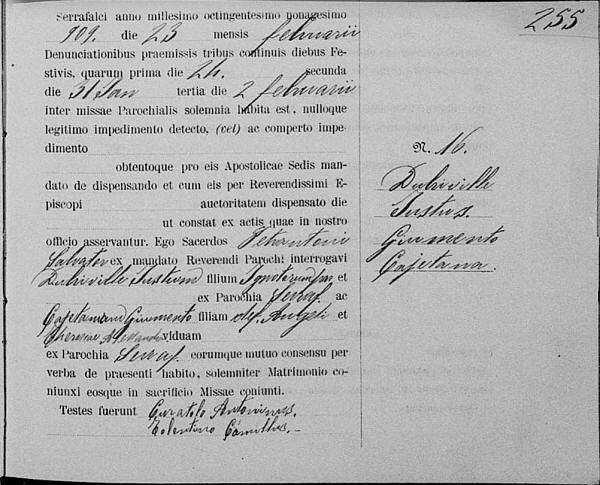 255
Serrafalci anno millesimo octingentesimo nonagesimo
909. die 23 mensis februarii
Denunciationibus praemissis tribus continuis diebus Fe-
stivis, quarum prima die 24. secunda
die 31 Jan tertia die 2 februarii
inter missae Parochialis solemnia habita est, nulloque
legitimo impedimento detecto, (vel) ac comperto impe-
dimento
obtentoque pro eis Apostolicae Sedis man-
dato de dispensando et cum eis per Reverendissimi E-
piscopi auctoritatem dispensato die
ut constat ex actis quae in nostro
officio asservantur. Ego Sacerdos Petrantoni
Salvator ex mandato Reverendi Parochi interrogavi
Dubiville Justum filium Ignotorum et
ex Parochia Serraf. ac
Cajetanam Giumento filiam Angeli et
Theresiae viduam
ex Parochia Serraf. eorumque mutuo consensu per
verba de praesenti habito, solemniter Matrimonio co-
niunxi eosque in sacrificio Missae coniunti.
Testes fuerunt Curatolo Antoninus.
Tolentino Camillus.
N. 16.
Dubiville
Justus.
Giumento
Cajetana.